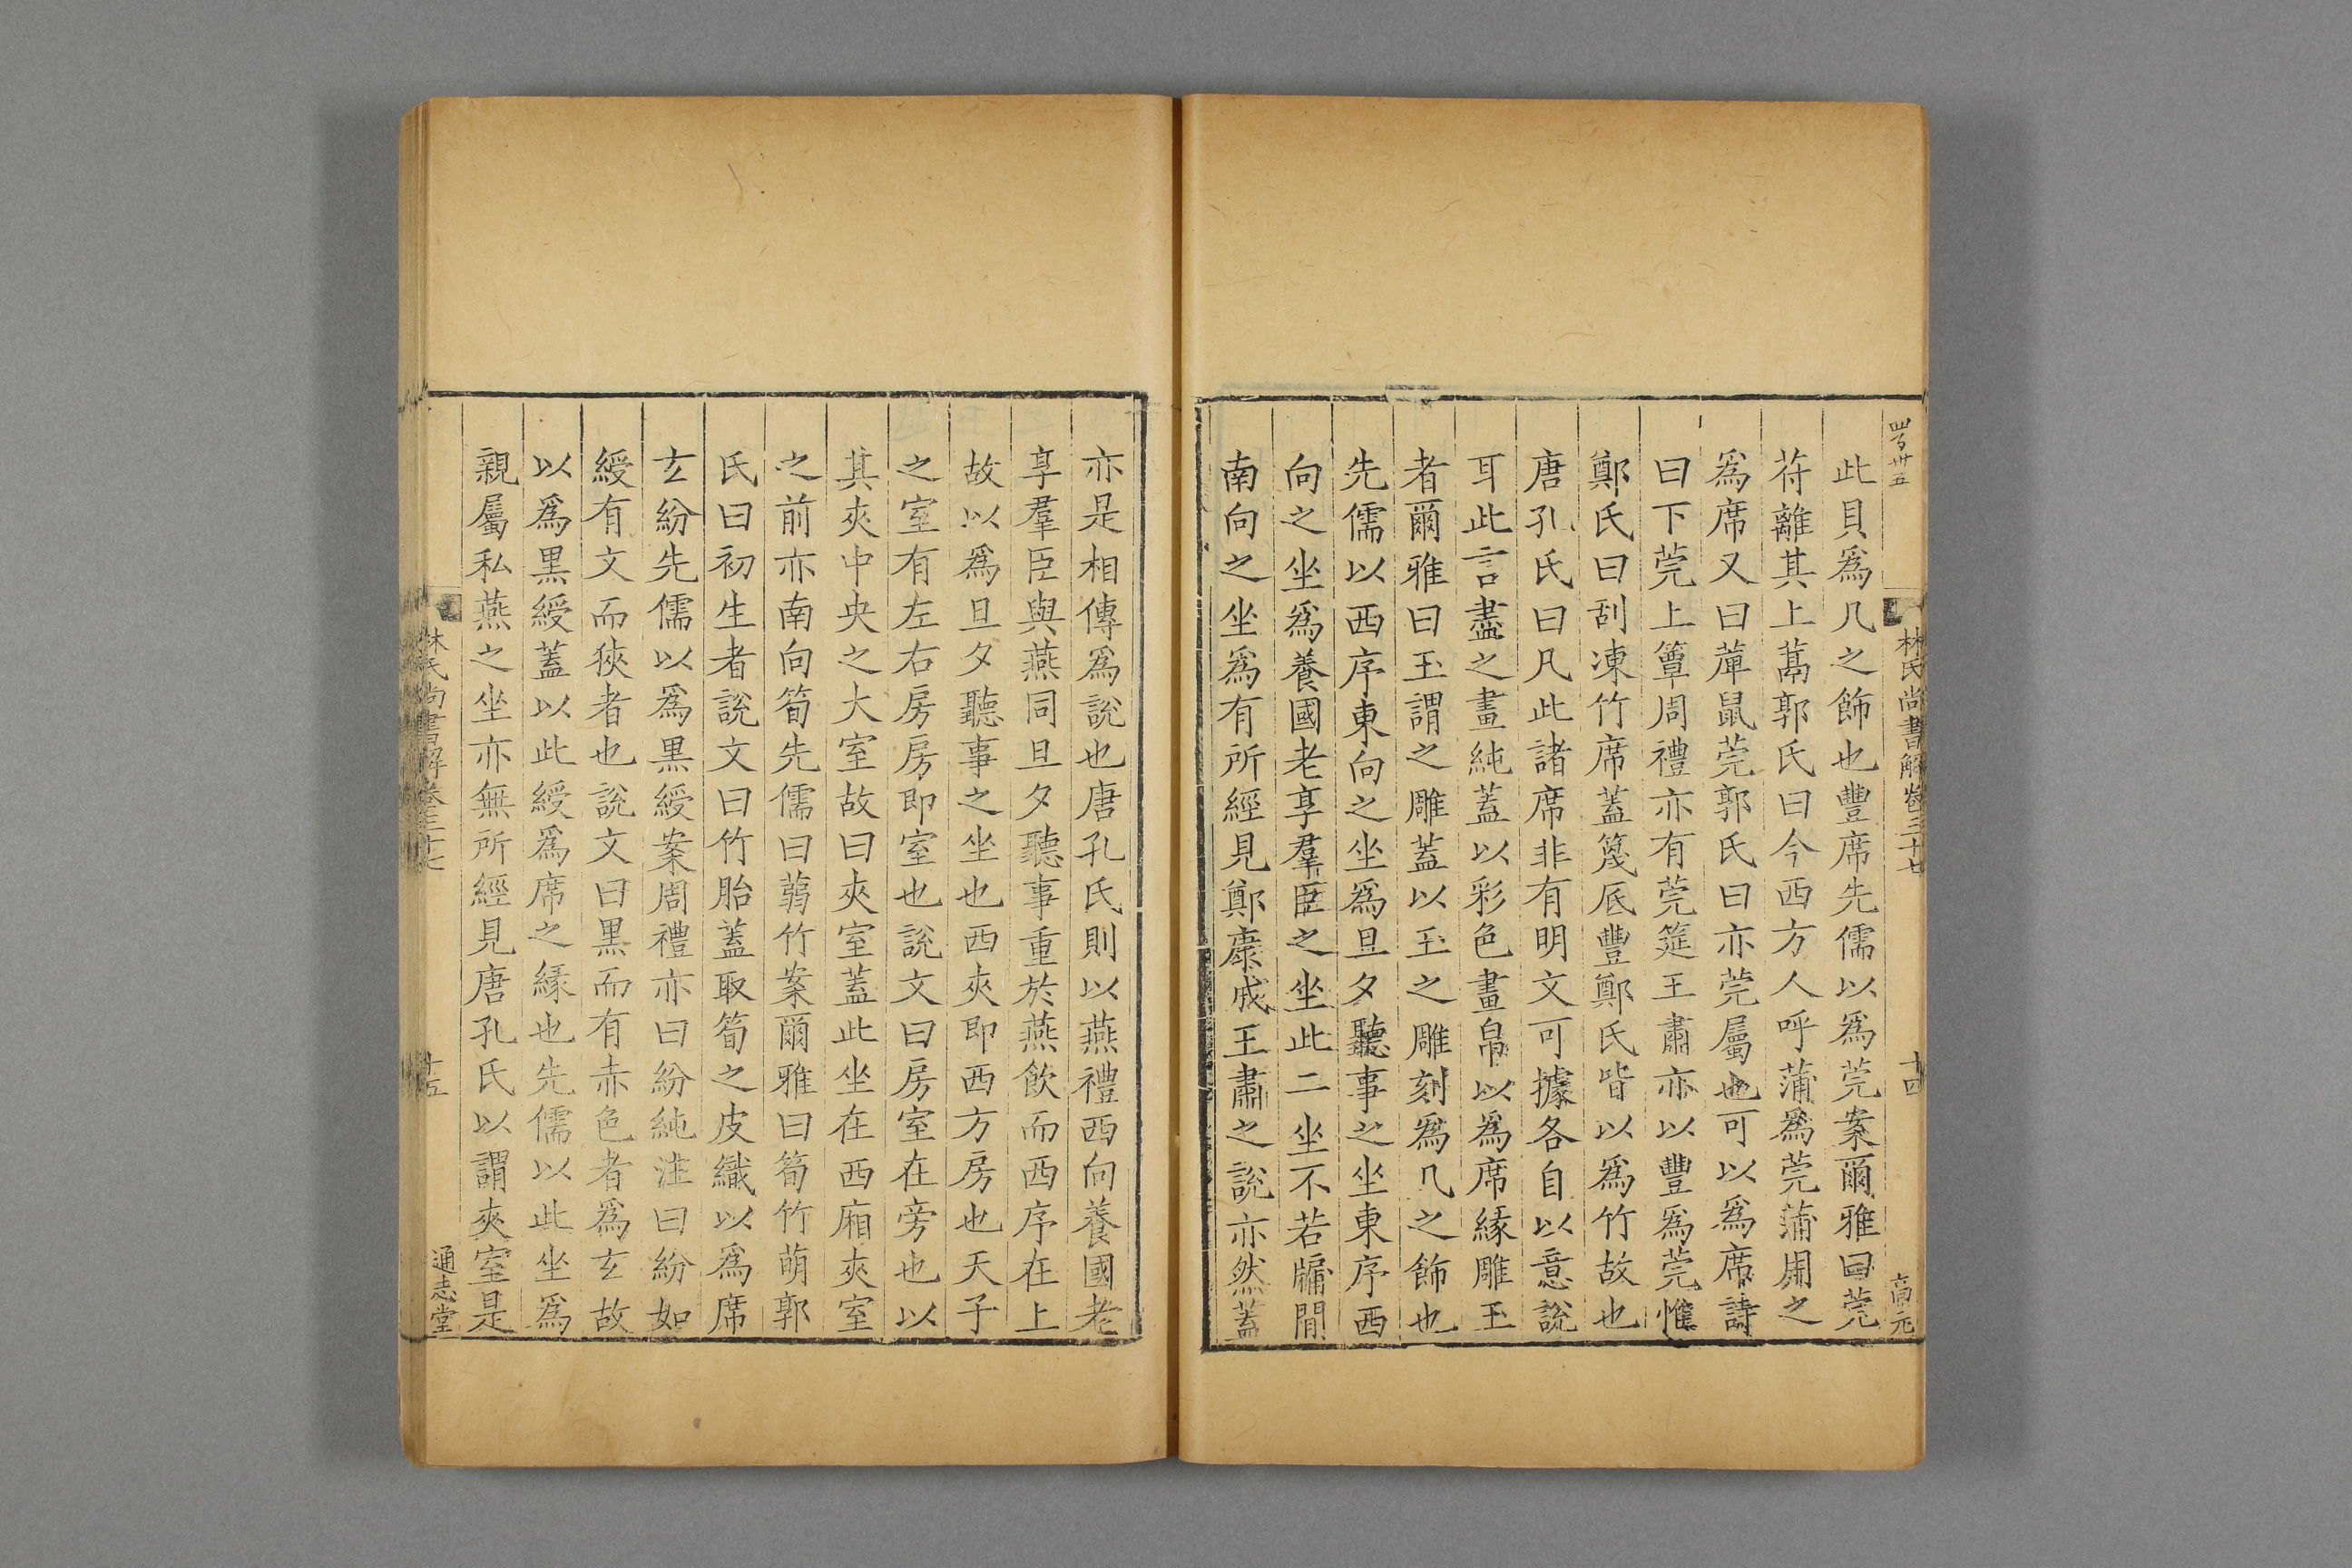 四百卅五
林氏尚書解卷三十七
十四
高元
此貝爲几之飾也豐席先儒以爲莞案爾雅曰莞
苻蘺其上蒚郭氏曰今西方人呼蒲爲莞蒲用之
爲席又曰葟鼠莞郭氏曰亦莞屬也可以爲席詩
曰下莞上簟周禮亦有莞筵王肅亦以豐爲莞惟
鄭氏曰刮凍竹席蓋篾厎豐鄭氏皆以爲竹故也
唐孔氏曰凡此諸席非有明文可據各自以意說
耳此言盡之畫純蓋以彩色畫帛以爲席緣雕玉
者爾雅曰玉謂之雕蓋以玉之雕刻爲几之飾也
先儒以西序東向之坐爲旦夕聽事之坐東序西
向之坐爲養國老享羣臣之坐此二坐不若牖間
南向之坐爲有所經見鄭康成王肅之說亦然蓋
亦是相傳爲說也唐孔氏則以燕禮西向養國老
享羣臣與燕同旦夕聽事重於燕飲而西序在上
故以爲旦夕聽事之坐也西夾即西方房也天子
之室有左右房房即室也說文曰房室在旁也以
其夾中央之大室故曰夾室蓋此坐在西廂夾室
之前亦南向筍先儒曰蒻竹案爾雅曰筍竹萌郭
氏曰初生者說文曰竹胎蓋取筍之皮織以爲席
玄紛先儒以爲黑綬案周禮亦曰紛純注曰紛如
綬有文而狹者也說文曰黑而有赤色者爲玄故
以爲黑綬蓋以此綬爲席之緣也先儒以此坐爲
親屬私燕之坐亦無所經見唐孔氏以謂夾室是
林氏尚書解卷三十七
十五
通志堂